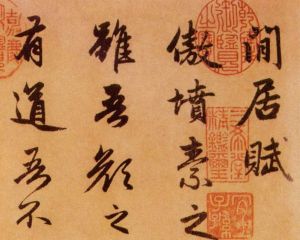 閒居賦
傲墳素之
雖吾顔之
有道吾不